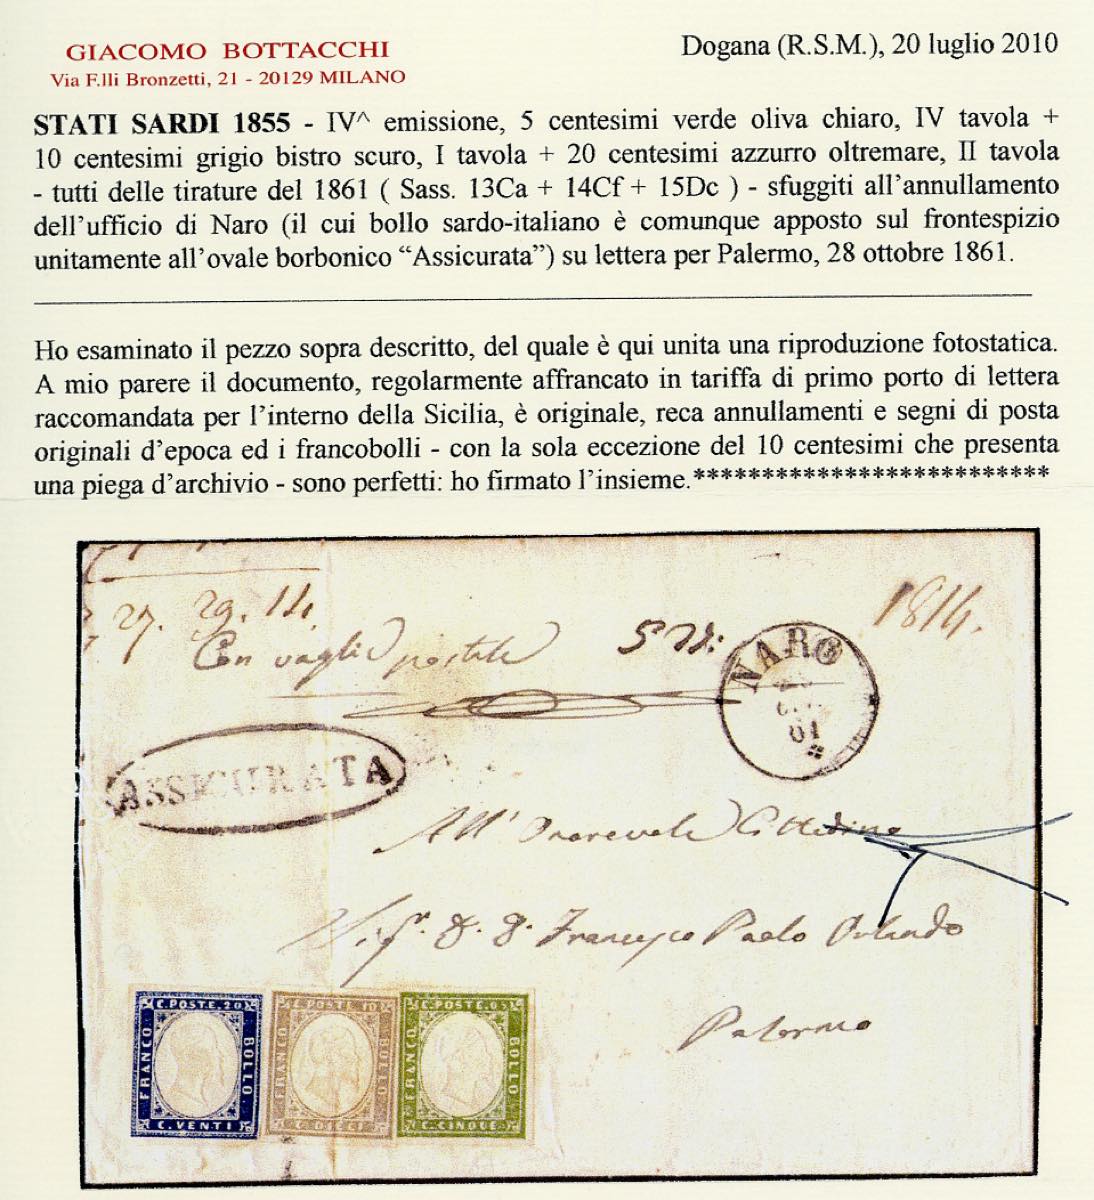 GIACOMO BOTTACCHI
Via F.lli Bronzetti, 21 - 20129 MILANO
Dogana (R.S.M.), 20 luglio 2010
STATI SARDI 1855 - IV^ emissione, 5 centesimi verde oliva chiaro, IV tavola +
10 centesimi grigio bistro scuro, I tavola + 20 centesimi azzurro oltremare, II tavola
- tutti delle tirature del 1861 ( Sass. 13Ca + 14Cf + 15Dc ) - sfuggiti all'annullamento
dell'ufficio di Naro (il cui bollo sardo-italiano è comunque apposto sul frontespizio
unitamente all'ovale borbonico "Assicurata") su lettera per Palermo, 28 ottobre 1861.
Ho esaminato il pezzo sopra descritto, del quale è qui unita una riproduzione fotostatica.
A mio parere il documento, regolarmente affrancato in tariffa di primo porto di lettera
raccomandata per l'interno della Sicilia, è originale, reca annullamenti e segni di posta
originali d'epoca ed i francobolli - con la sola eccezione del 10 centesimi che presenta
una piega d'archivio - sono perfetti: ho firmato l'insieme.**************************
27. 29. 11.
1814.
Con vaglia postale
NARO
61
ASSICURATA
All' Onorevole Cittadino
Sigr. D. D. Francesco Paolo Orlando
Palermo
C. POSTE. 20
FRANCO
BOLLO
C. VENTI
C. POSTE. 10
FRANCO
BOLLO
C. DIECI
C. POSTE. 05
FRANCO
BOLLO
C. CINQUE